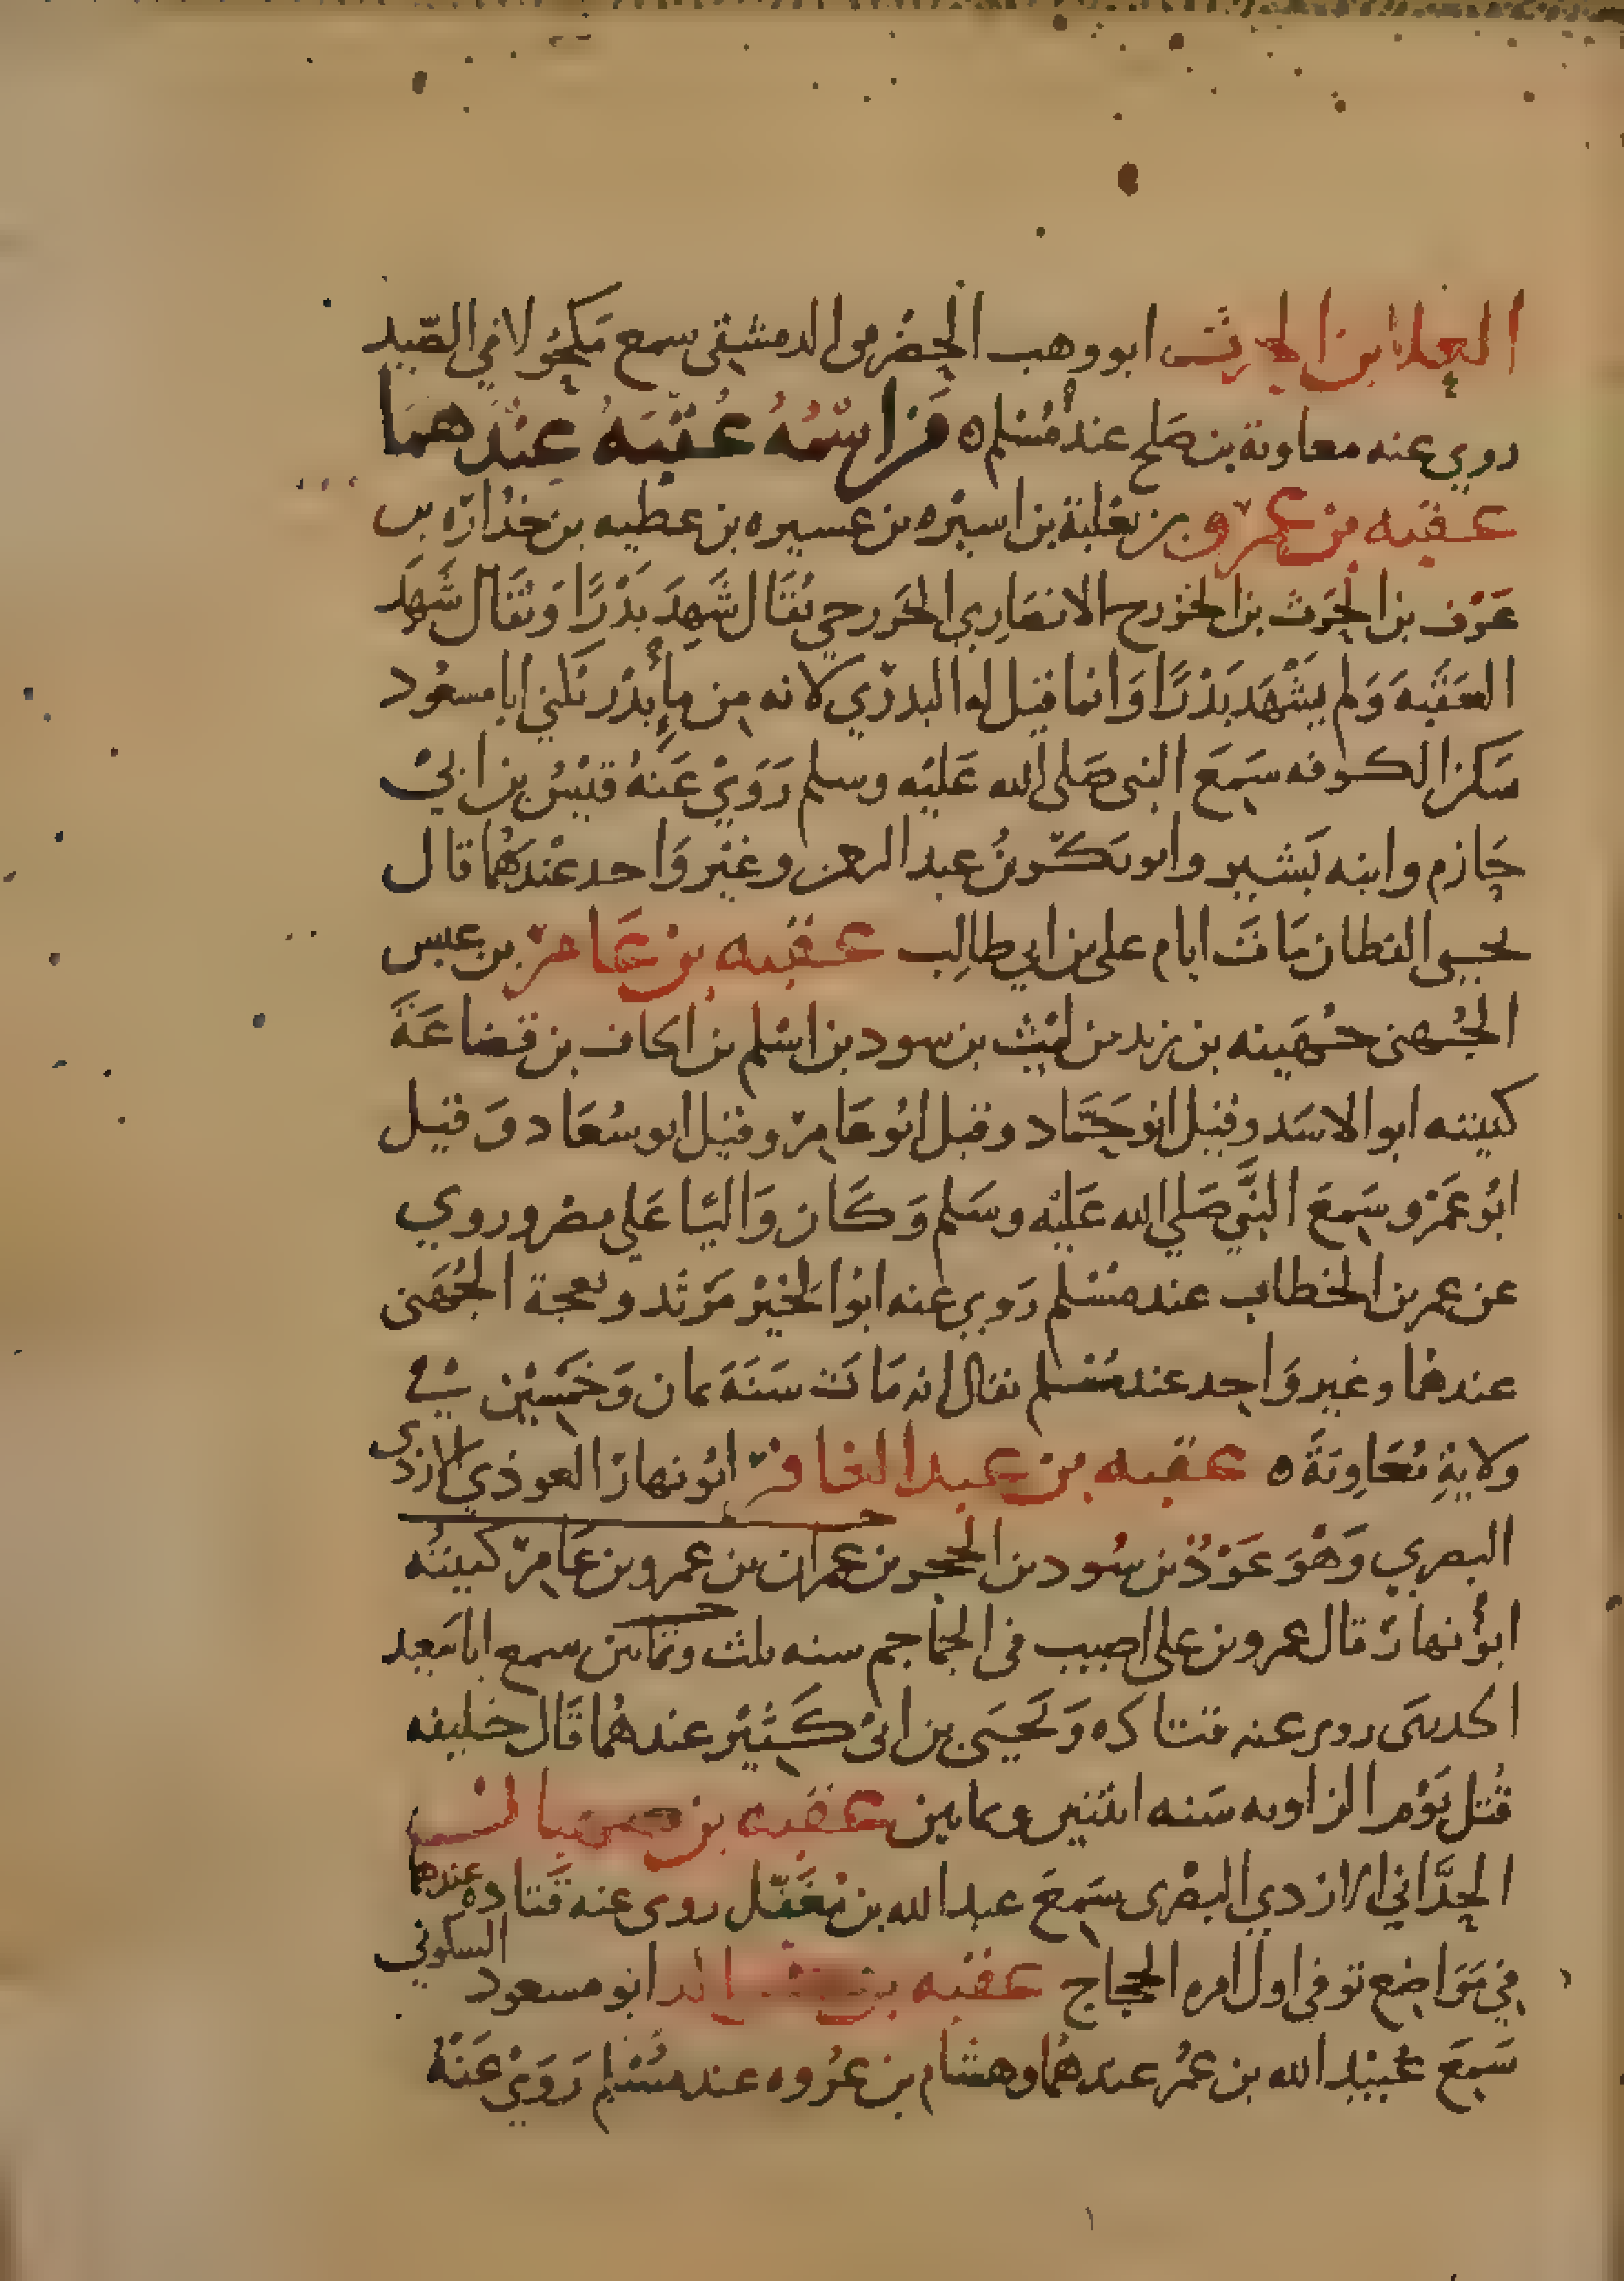 العلا بن الحرث ابو وهب الحضرمى الدمشقى سمع مكحولا في الصيد
روي عنه معاوية بن صلح عند مسلم ه من اسمه عقبه عندهما
عقبه بن عمرو بن ثعلبة بن اسيره بن عسيره بن عطيه بن خداره بن
عوف بن الحرث بن الخزرج الانصاري الخزرجي يقال شهد بدرا ويقال شهد
العقبه ولم يشهد بدرا وانما قيل له البدري لانه من ماء بدر يكني ابا مسعود
سكن الكوفه سمع النبى صلى الله عليه وسلم روي عنه قيس بن ابي
حازم وابنه بشير وابو بكر بن عبد الرحمن وغير واحد عندهما قال
يحيى القطان مات ايام على بن ابي طالب عقبه بن عامر بن عبس
الجهنى جهينه بن زيد من ليث بن سود بن اسلم بن الحاف بن قضاعة
كنيته ابو الاسد وقيل ابو حماد وقيل ابو عامر وقيل ابو سعاد وقيل
ابو عمرو سمع النبي صلي الله عليه وسلم وكان واليا علي مصر وروي
عن عمر بن الخطاب عند مسلم روي عنه ابو الخير مرثد وبعجة الجهنى
عندهما وغير واحد عند مسلم يقال انه مات سنة ثمان وخمسين في
ولاية معاوية ه عقبه بن عبد الغافر ابو نهار العوذي الازدى
البصري وهو عوذ بن سود بن الحجر بن عمران بن عمرو بن عامر كنيته
ابو نهار قال عمرو بن على اصيب فى الجماجم سنه ثلث وثمانين سمع ابا سعيد
الخدرى روى عنه قتاده ويحيى بن ابى كثير عندهما قال خليفه
قتل يوم الزاويه سنه اثنتين وثمانين عقبه بن صهبان
الحداني الازدي البصرى سمع عبد الله بن مغفل روى عنه قتاده عندهما
في مواضع توفى اول امره الحجاج عقبه بن خالد ابو مسعود السكوني
سمع عبيد الله بن عمر عندهما وهشام بن عروه عند مسلم روي عنه